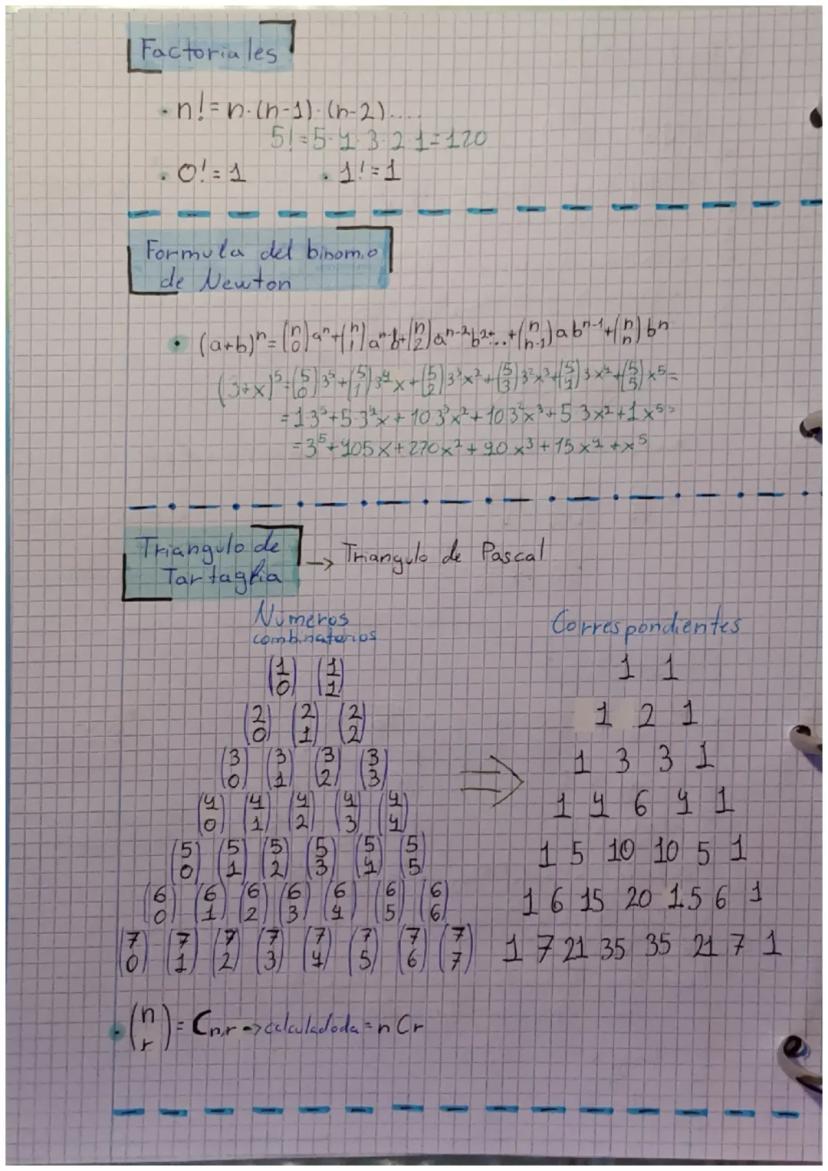 Factoriales
• n! = n·(n-1)·(n-2)....
5! = 5·4·3·2·1 = 120
• 0! = 1 • 1! = 1
Formula del binomio
de Newton
• (a+b)ⁿ = (n 0) aⁿ + (n 1) aⁿ⁻¹b + (n 2) aⁿ⁻²b² + ... + (n n-1) a bⁿ⁻¹ + (n n) bⁿ
(3+x)⁵ = (5 0) 3⁵ + (5 1) 3⁴x + (5 2) 3³x² + (5 3) 3²x³ + (5 4) 3x⁴ + (5 5) x⁵ =
= 1 3⁵ + 5·3⁴x + 10 3³x² + 10 3²x³ + 5 3x² + 1x⁵ =
= 3⁵ + 405x + 270x² + 90x³ + 15x⁴ + x⁵
Triangulo de
Tartaglia → Triangulo de Pascal
Números
combinatorios
(1 0) (1 1)
(2 0) (2 1) (2 2)
(3 0) (3 1) (3 2) (3 3)
(4 0) (4 1) (4 2) (4 3) (4 4)
(5 0) (5 1) (5 2) (5 3) (5 4) (5 5)
(6 0) (6 1) (6 2) (6 3) (6 4) (6 5) (6 6)
(7 0) (7 1) (7 2) (7 3) (7 4) (7 5) (7 6) (7 7)
⇒
Correspondientes
1 1
1 2 1
1 3 3 1
1 4 6 4 1
1 5 10 10 5 1
1 6 15 20 15 6 1
1 7 21 35 35 21 7 1
• (n r) = Cn,r → calculadoda = n Cr